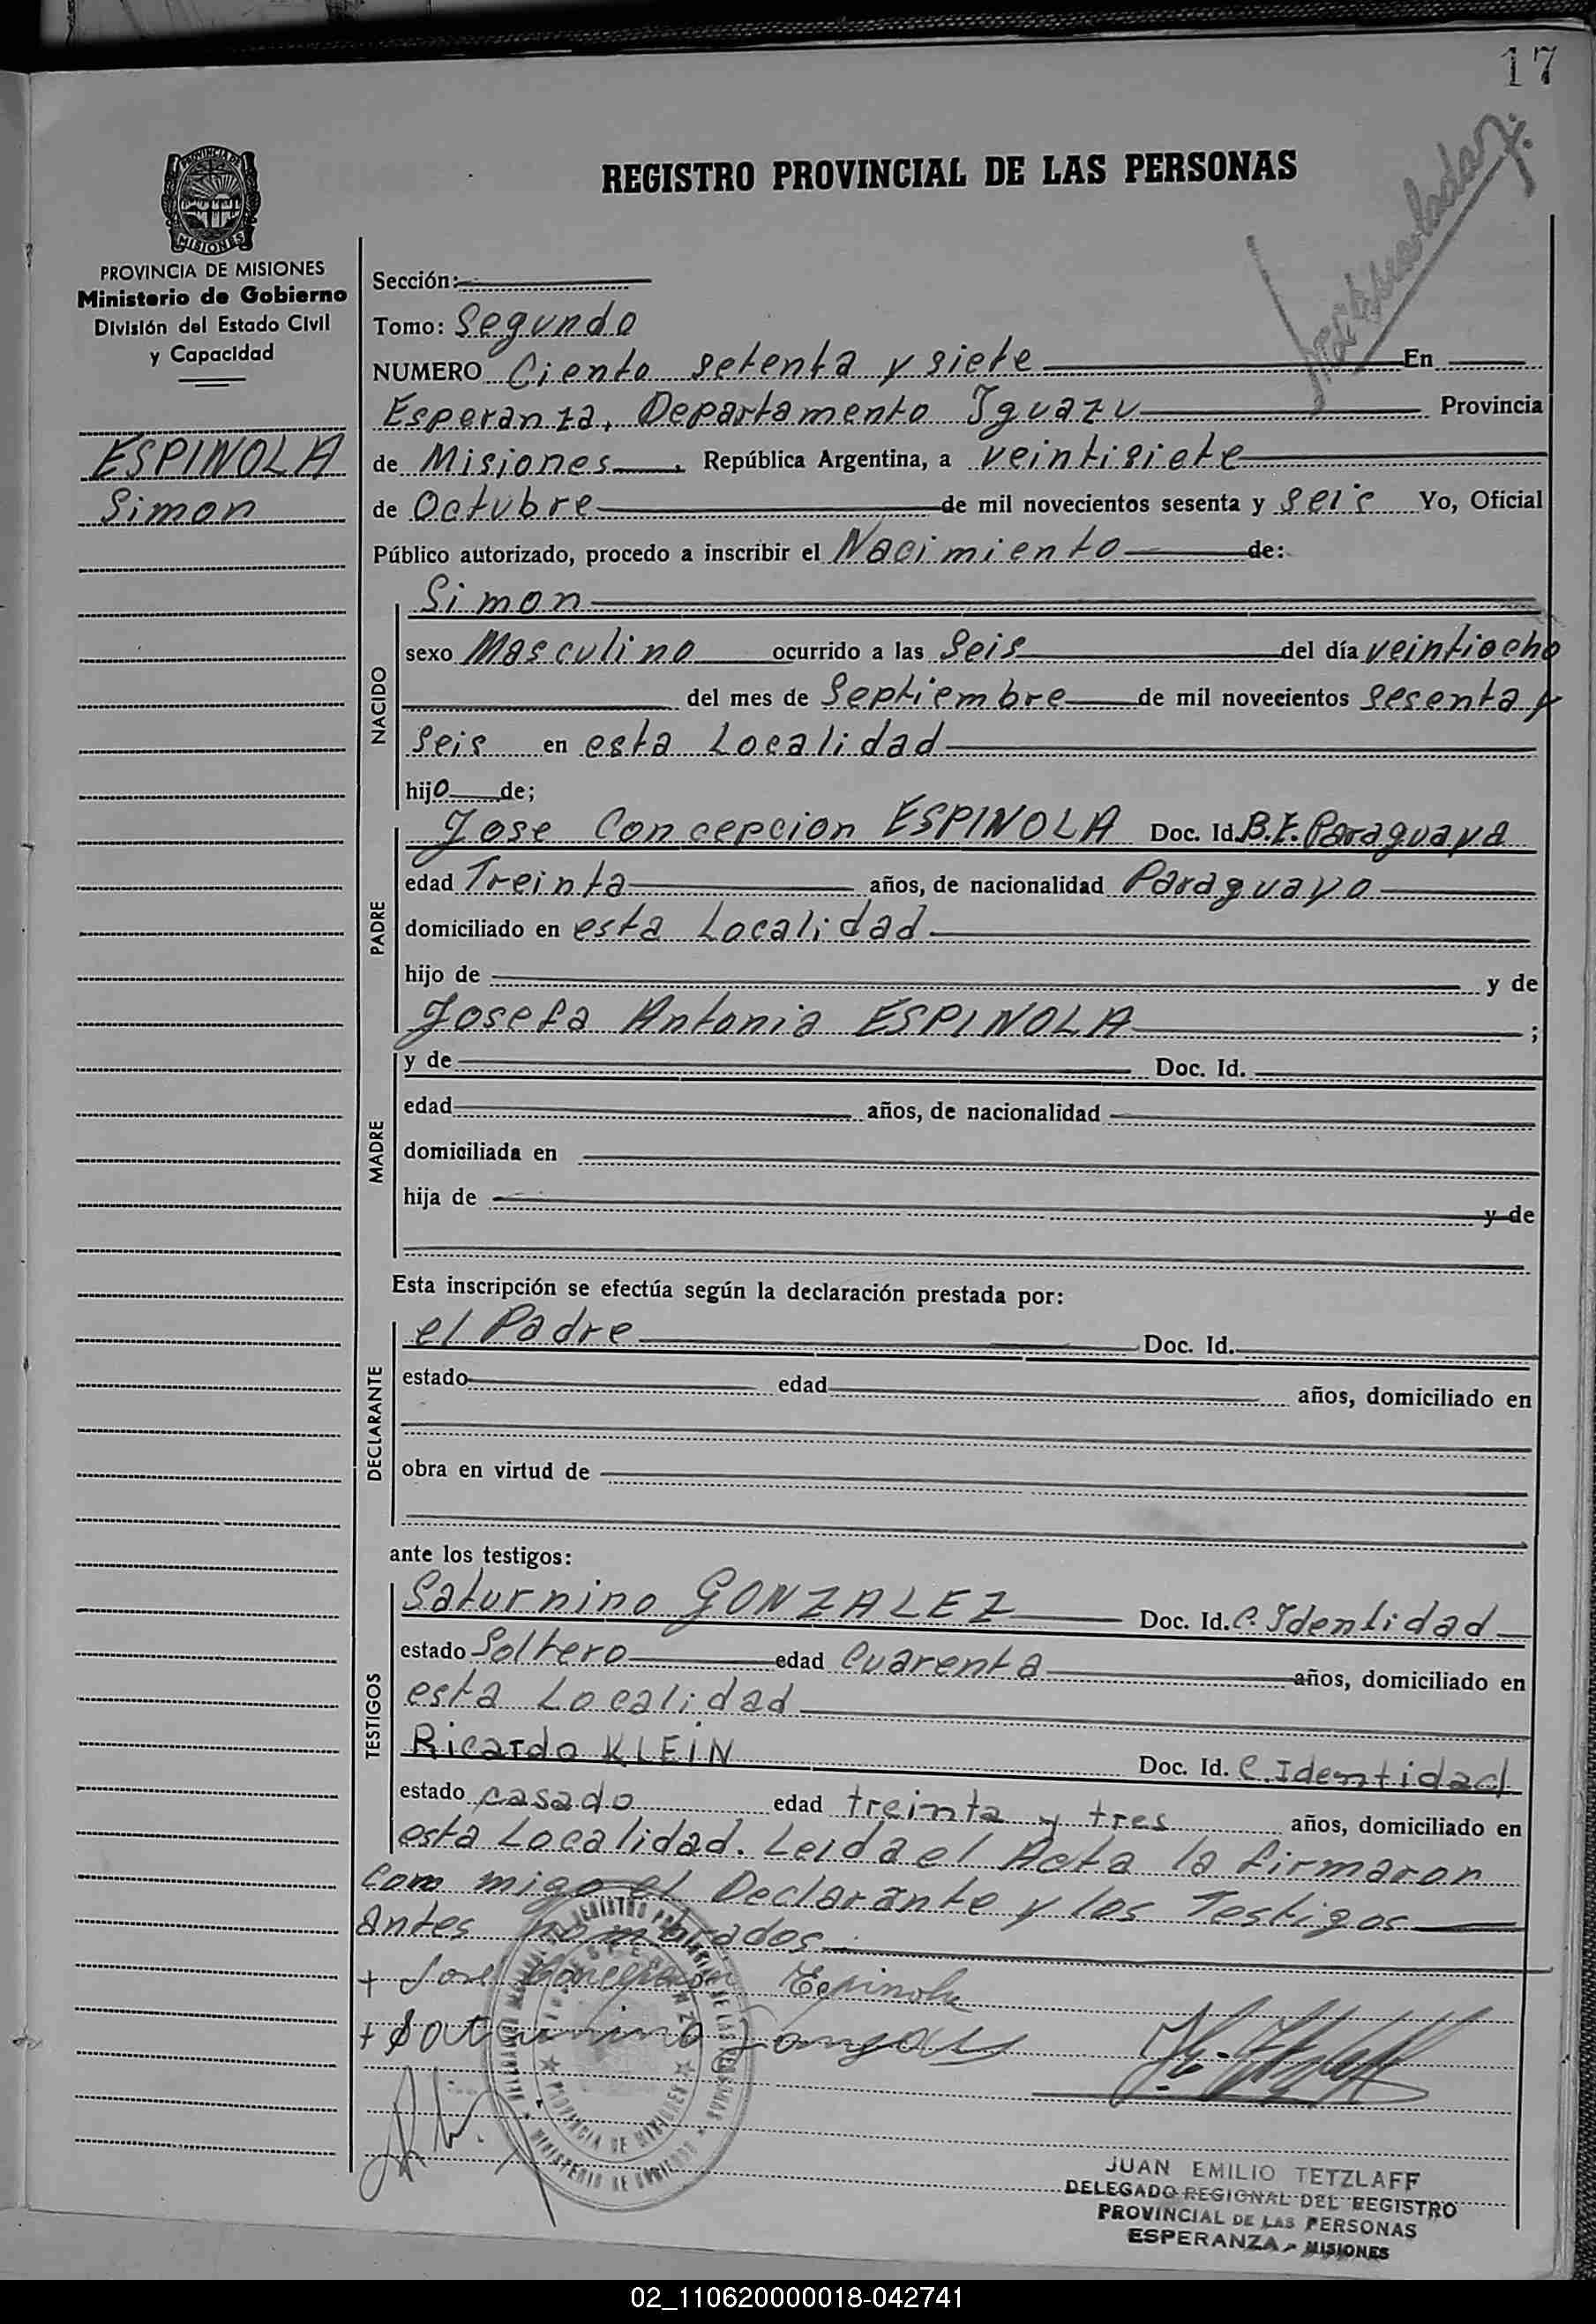 17
REGISTRO PROVINCIAL DE LAS PERSONAS
PROVINCIA DE
MISIONES
PROVINCIA DE MISIONES
Ministerio de Gobierno
División del Estado Civil
y Capacidad
ESPINOLA
Simon
Sección:
Tomo: Segundo
NUMERO Ciento setenta y siete En
Esperanza, Departamento Iguazu Provincia
de Misiones, República Argentina, a veintisiete
de Octubre de mil novecientos sesenta y seis Yo, Oficial
Público autorizado, procedo a inscribir el Nacimiento de:
NACIDO
Simon
sexo Masculino ocurrido a las Seis del día veintiocho
del mes de Septiembre de mil novecientos sesenta y
seis en esta Localidad
hijo de;
PADRE
Jose Concepcion ESPINOLA Doc. Id. Paraguaya
edad Treinta años, de nacionalidad Paraguayo
domiciliado en esta Localidad
hijo de y de
Josefa Antonia ESPINOLA ;
MADRE
y de Doc. Id.
edad años, de nacionalidad
domiciliada en
hija de y de
Esta inscripción se efectúa según la declaración prestada por:
DECLARANTE
el Padre Doc. Id.
estado edad años, domiciliado en
obra en virtud de
ante los testigos:
TESTIGOS
Saturnino GONZALEZ Doc. Id. C. Identidad
estado Soltero edad Cuarenta años, domiciliado en
esta Localidad
Ricardo KLEIN Doc. Id. C. Identidad
estado casado edad treinta y tres años, domiciliado en
esta Localidad. Leida el Acta la firmaron
Com migo el Declarante y los Testigos
antes nombrados.
+ Jose Concepcion Espinola
+ Saturnino
PROVINCIA DE MISIONES
MINISTERIO DE GOBIERNO
JUAN EMILIO TETZLAFF
DELEGADO REGIONAL DEL REGISTRO
PROVINCIAL DE LAS PERSONAS
ESPERANZA - MISIONES
02_110620000018-042741